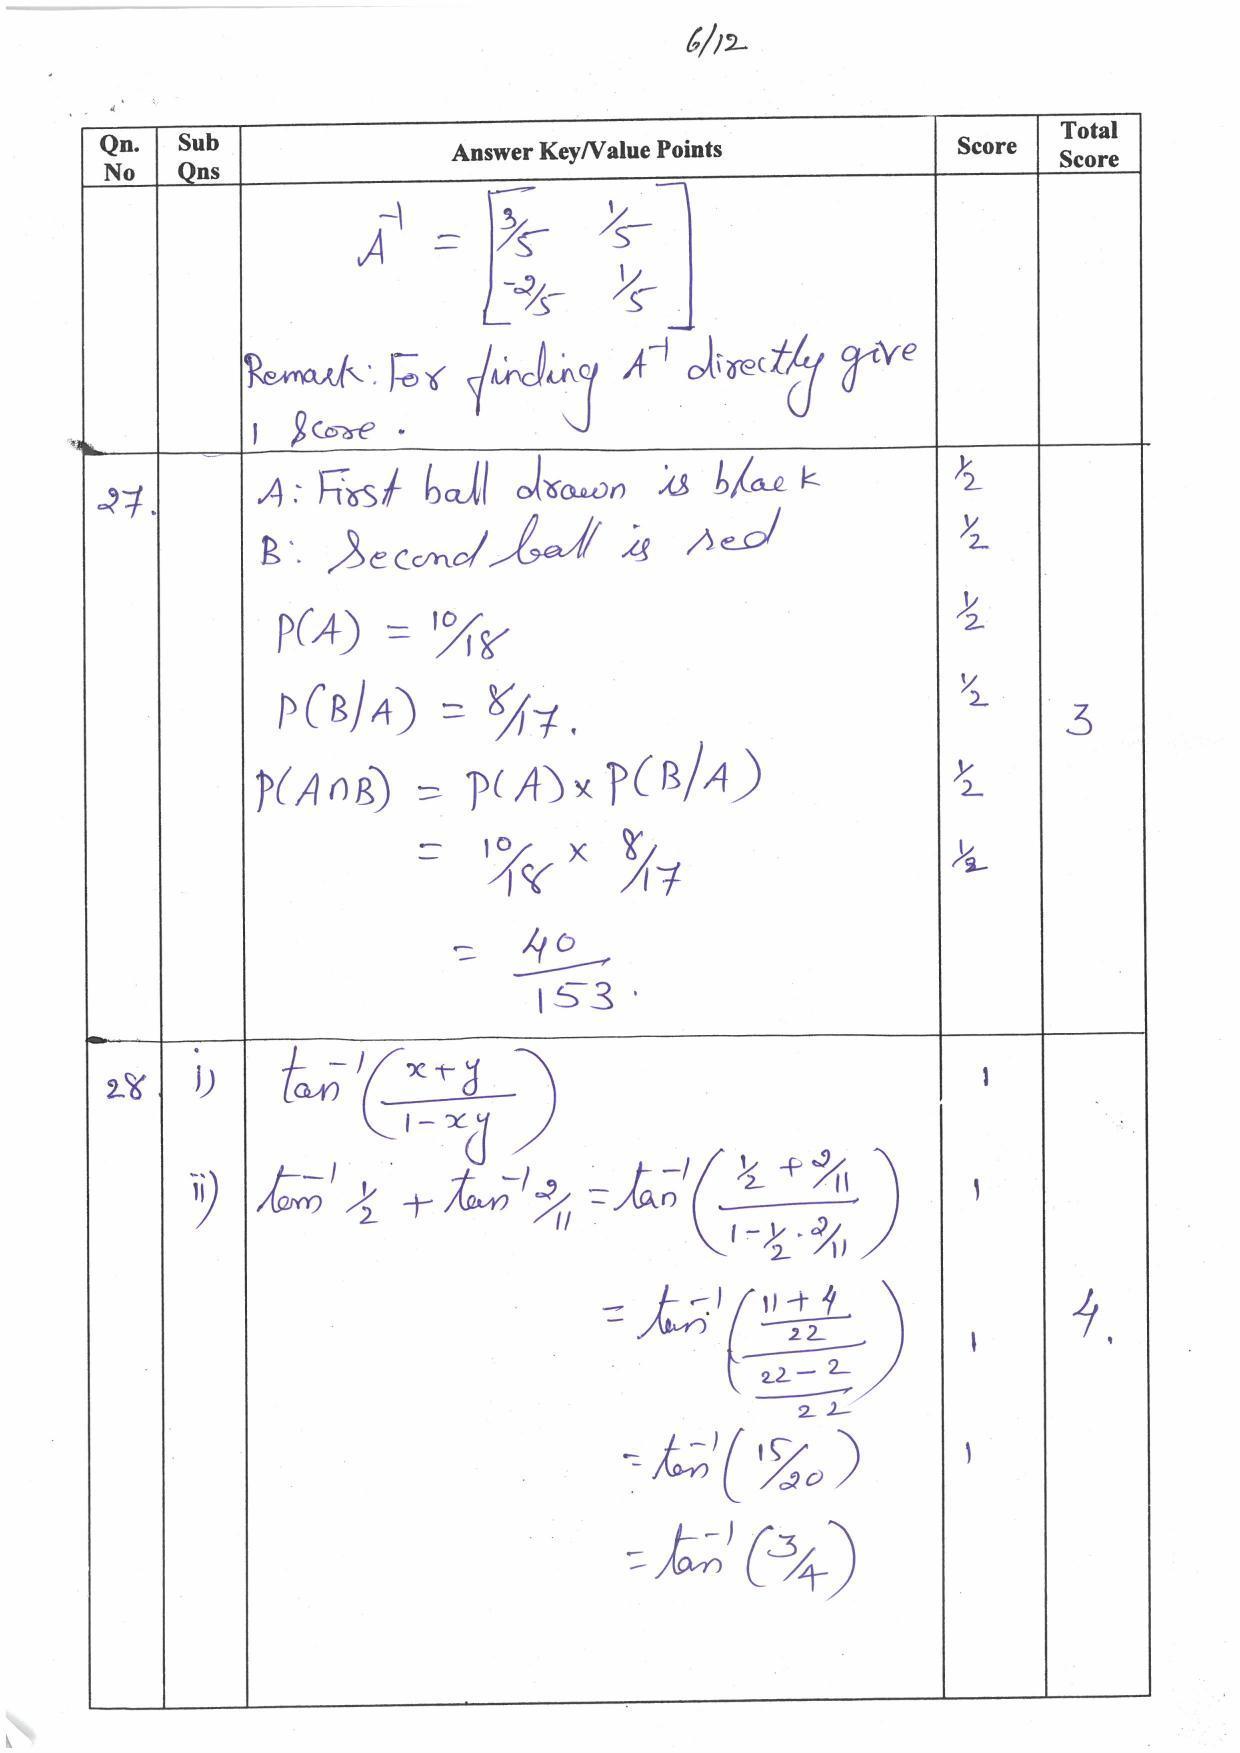 6/12
Qn. No Sub Qns Answer Key/Value Points Score Total Score
A⁻¹ = [3/5 1/5
-2/5 1/5]
Remark: For finding A⁻¹ directly give
1 Score.
27. A: First ball drawn is black 1/2
B: Second ball is red 1/2
P(A) = 10/18 1/2
P(B/A) = 8/17. 1/2 3
P(A∩B) = P(A) × P(B/A) 1/2
= 10/18 × 8/17 1/2
= 40/153.
28. i) tan⁻¹((x+y)/(1-xy)) 1
ii) tan⁻¹ 1/2 + tan⁻¹ 2/11 = tan⁻¹((1/2 + 2/11)/(1 - 1/2 · 2/11)) 1
= tan⁻¹(((11+4)/22)/((22-2)/22)) 1 4.
= tan⁻¹(15/20) 1
= tan⁻¹(3/4)